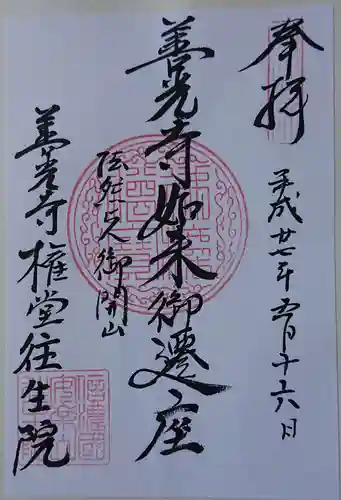 奉拝
平成廿七年五月十六日
善光寺如来御遷座
法然上人御開山
善光寺権堂往生院